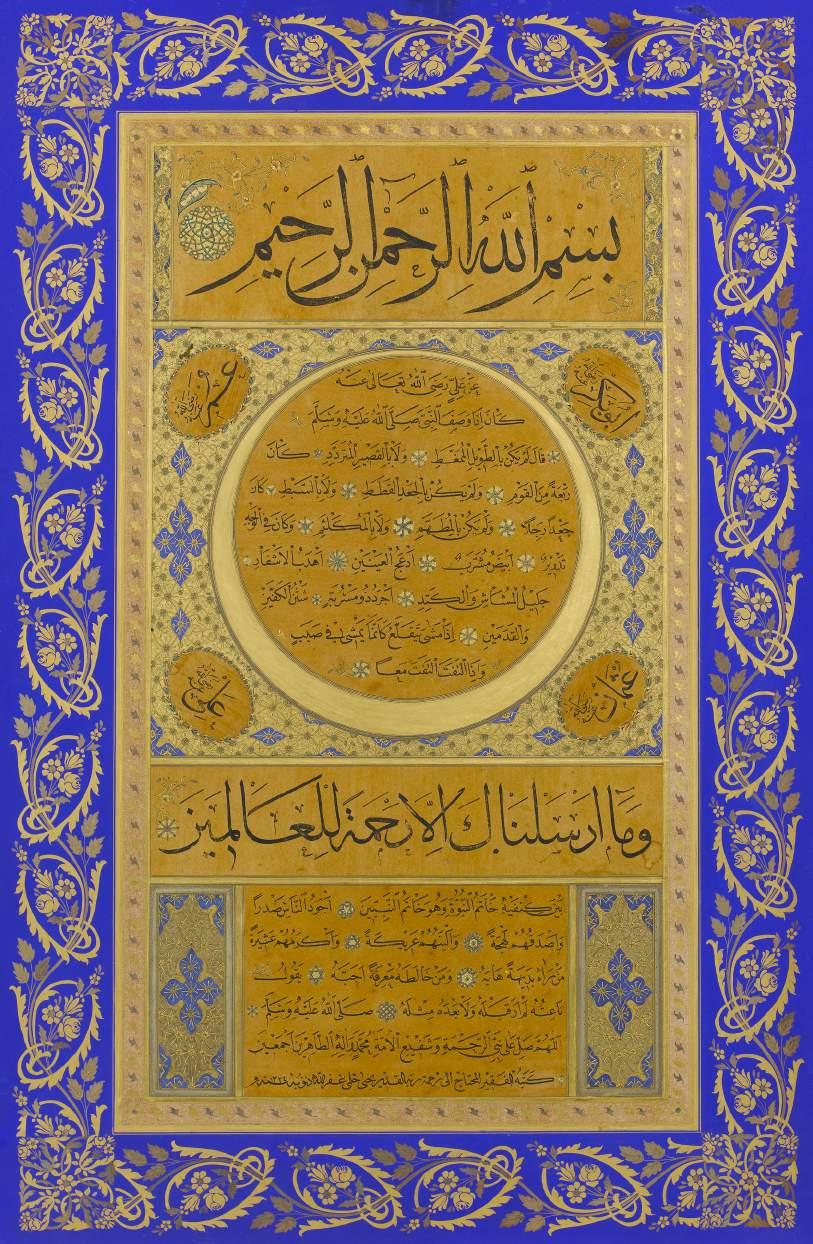 بِسْمِ اللّٰهِ الرَّحْمٰنِ الرَّحِيمِ
ابوبكر رضى الله عنه
عمر رضى الله عنه
عَنْ عَلِيٍّ رَضِىَ اللّٰهُ تَعَالٰى عَنْهُ
كَانَ اِذَا وَصَفَ النَّبِىَّ صَلَّى اللّٰهُ عَلَيْهِ وَسَلَّمَ
قَالَ لَمْ يَكُنْ بِالطَّوِيلِ الْمُمَغَّطِ وَلَا بِالْقَصِيرِ الْمُتَرَدِّدِ كَانَ
رَبْعَةً مِنَ الْقَوْمِ وَلَمْ يَكُنْ بِالْجَعْدِ الْقَطَطِ وَلَا بِالسَّبْطِ كَانَ
جَعْدًا رَجِلًا وَلَمْ يَكُنْ بِالْمُطَهَّمِ وَلَا بِالْمُكَلْثَمِ وَكَانَ فِى الْوَجْهِ
تَدْوِيرٌ اَبْيَضُ مُشْرَبٌ اَدْعَجُ الْعَيْنَيْنِ اَهْدَبُ الْاَشْفَارِ
جَلِيلُ الْمُشَاشِ وَالْكَتَدِ اَجْرَدُ ذُو مَسْرُبَةٍ شَثْنُ الْكَفَّيْنِ
وَالْقَدَمَيْنِ اِذَا مَشٰى يَتَقَلَّعُ كَاَنَّمَا يَمْشِى فِى صَبَبٍ
وَاِذَا الْتَفَتَ الْتَفَتَ مَعًا
عثمان رضى الله عنه
على رضى الله عنه
وَمَا اَرْسَلْنَاكَ اِلَّا رَحْمَةً لِلْعَالَمِينَ
بَيْنَ كَتِفَيْهِ خَاتَمُ النُّبُوَّةِ وَهُوَ خَاتَمُ النَّبِيِّينَ اَجْوَدُ النَّاسِ صَدْرًا
وَاَصْدَقُهُمْ لَهْجَةً وَاَلْيَنُهُمْ عَرِيكَةً وَاَكْرَمُهُمْ عَشِيرَةً
مَنْ رَاٰهُ بَدِيهَةً هَابَهُ وَمَنْ خَالَطَهُ مَعْرِفَةً اَحَبَّهُ يَقُولُ
نَاعِتُهُ لَمْ اَرَ قَبْلَهُ وَلَا بَعْدَهُ مِثْلَهُ صَلَّى اللّٰهُ عَلَيْهِ وَسَلَّمَ
اَللّٰهُمَّ صَلِّ عَلٰى نَبِىِّ الرَّحْمَةِ وَشَفِيعِ الْاُمَّةِ مُحَمَّدٍ وَاٰلِهِ الطَّاهِرِينَ اَجْمَعِينَ
كتبه الفقير المحتاج الى رحمة ربه القدير يحيى حلمى غفر الله ذنوبه